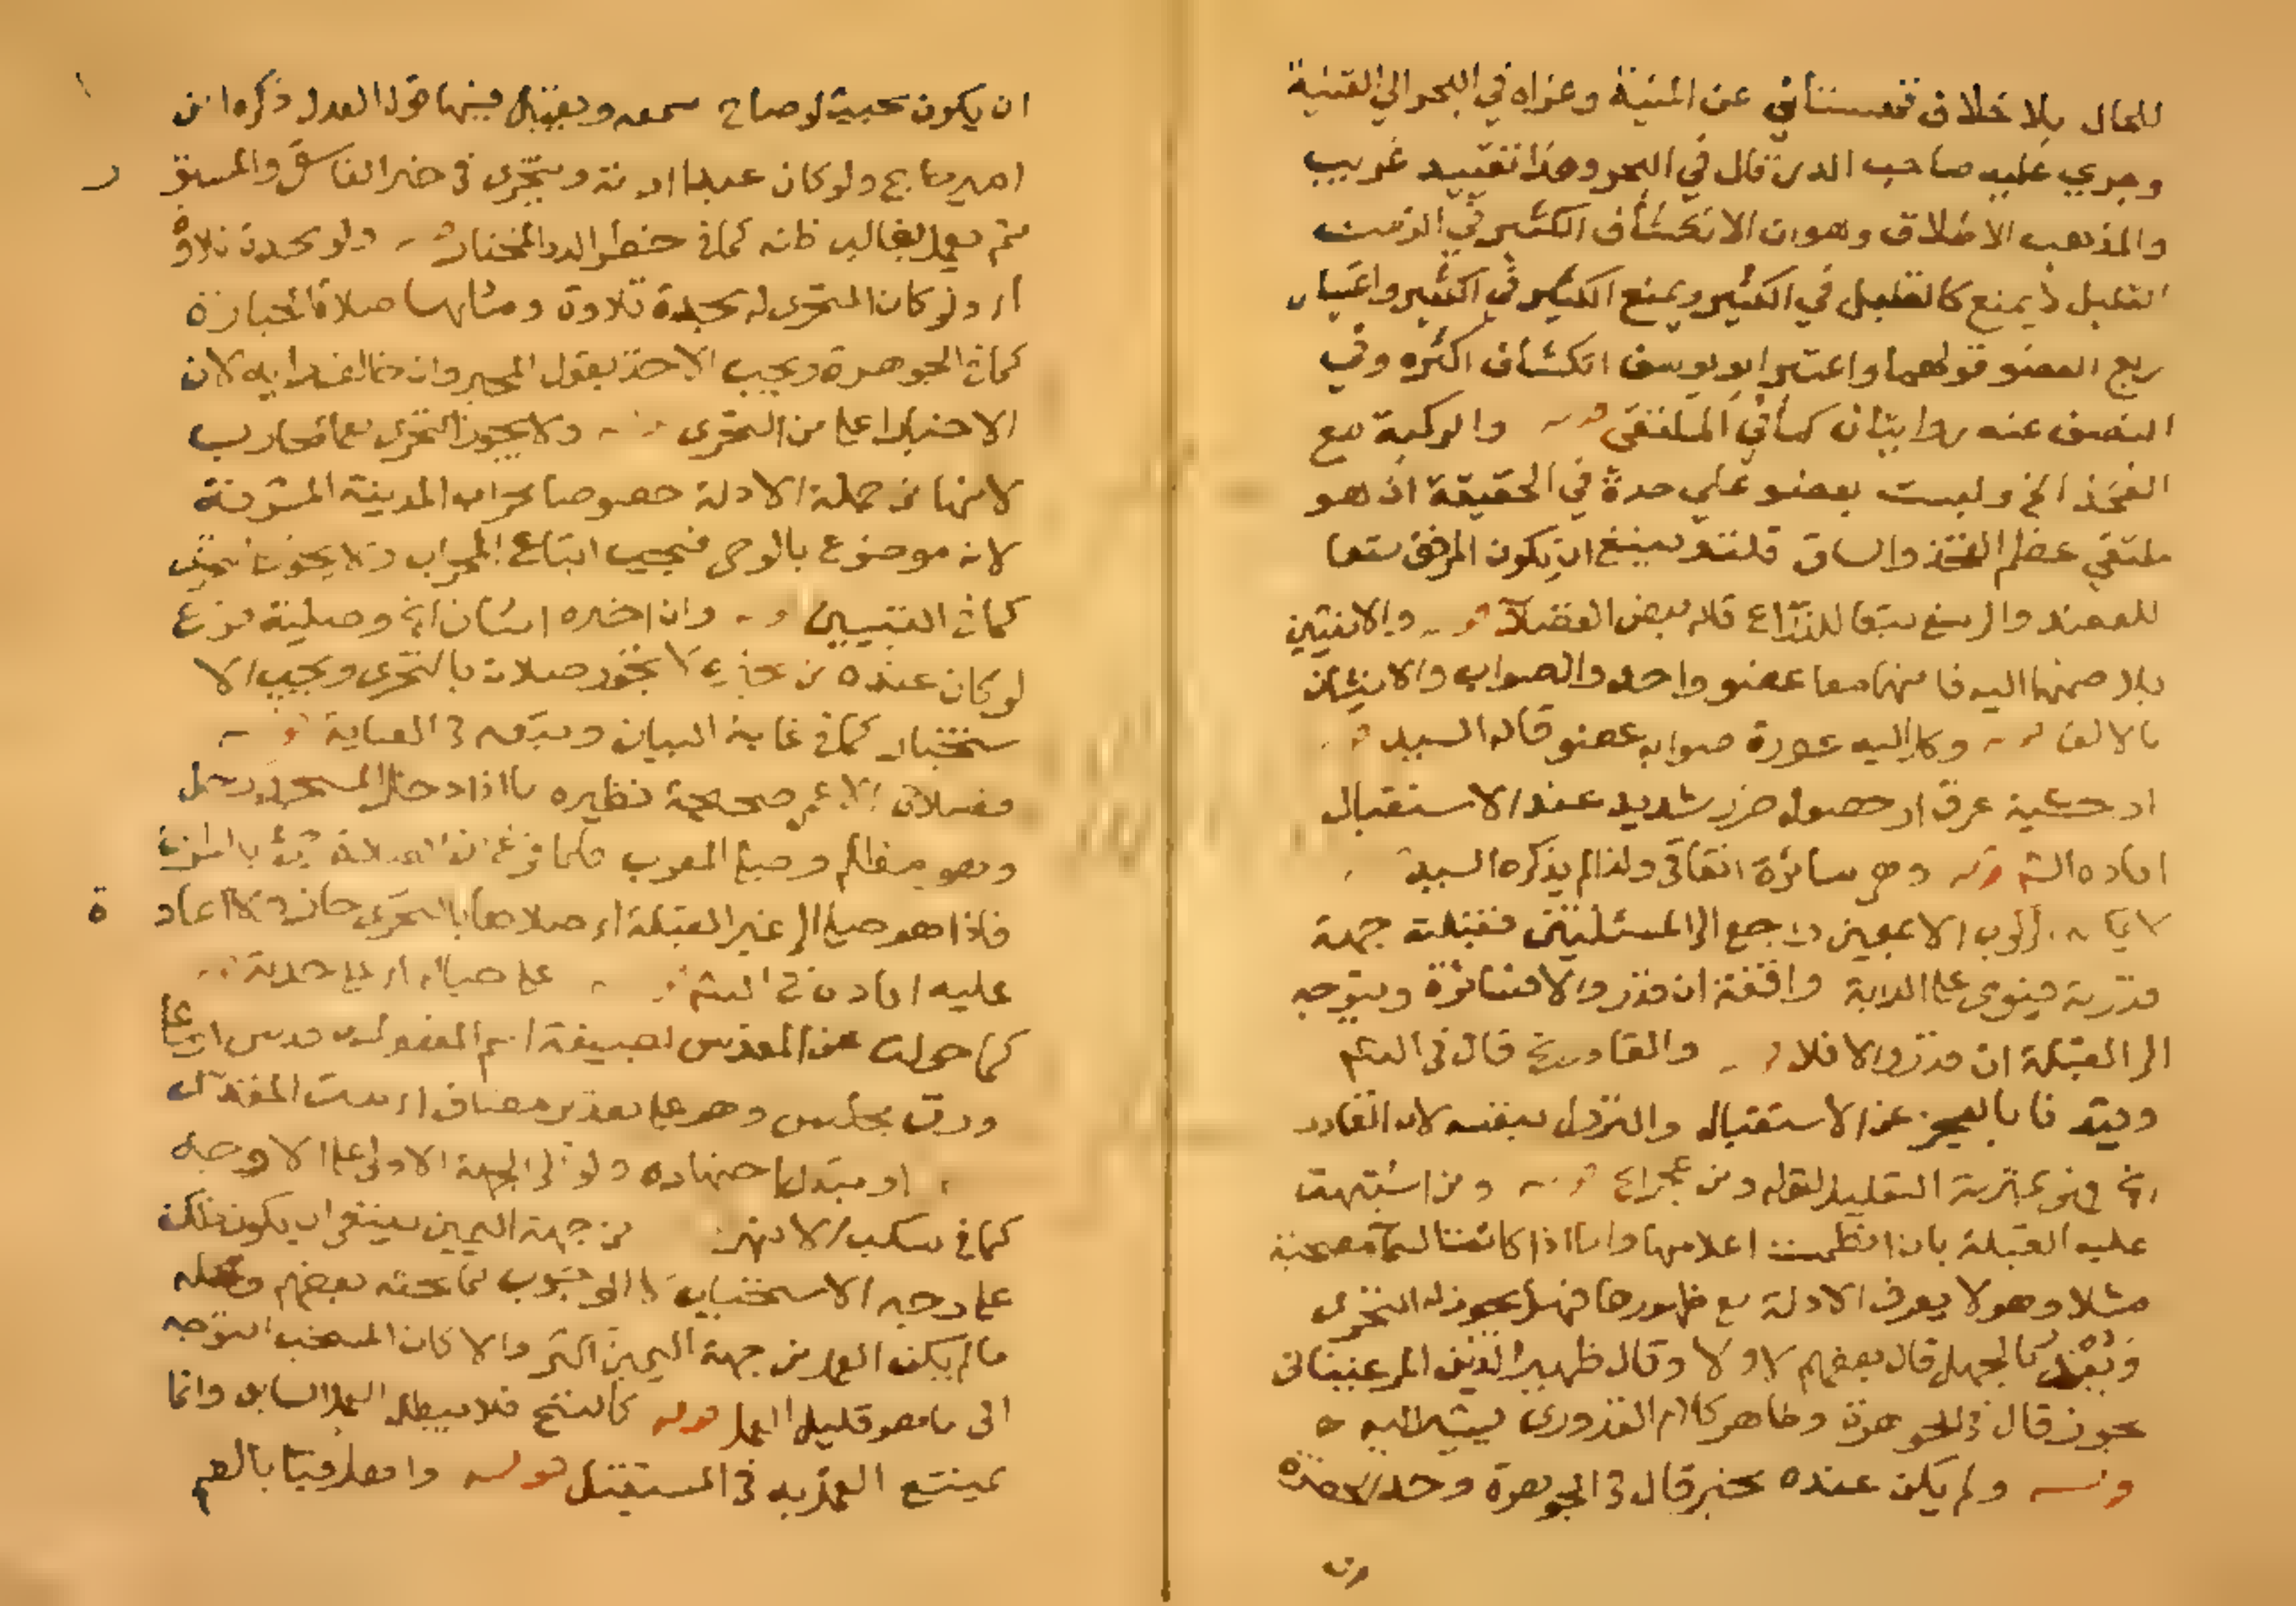 للحال بلا خلاف قهستاني عن المنية وعزاه في البحر الي القنية
وجري عليه صاحب الدرر قال في البحر وهذا تقييد غريب
والمذهب الاطلاق وهو ان الانكشاف الكثير في الزمن
القليل لا يمنع كالقليل في الكثير ويمنع الكثير في الكثير واعتبار
ربع العضو قولهما واعتبر ابو يوسف انكشاف اكثره وفي
النصف عنه روايتان كما في الملتقى قوله والركبة مع
الفخذ الخ وليست بعضو علي حدة في الحقيقة اذ هو
ملتقي عظم الفخذ والساق قلت وينبغي ان يكون المرفق تبعا
للعضد والرسغ تبعا للذراع قاله بعض الفضلا قوله والانثيين
بلا ضمهما اليه فانهما معا عضو واحد والصواب والانثيان
بالالف قوله وكل الية عورة صوابه عضو قاله السيد قوله
او خشية غرق او حصول ضرر شديد عند الاستقبال
افاده الشم قوله وهي سائرة اتفاقي ولذا لم يذكره السيد
الاعميين راجع الى المسئلتين فقبلته جهة
قدرته فينوي على الدابة واقفة ان قدر والا فسائرة ويتوجه
الى القبلة ان قدر والا فلا قوله والقادر الخ قال في الشم
وقيدنا بالعجز عن الاستقبال والنزول بنفسه لان القادر
التقليد لقوله ومن عجز الخ قوله ومن اشتبهت
عليه القبلة بان انطمست اعلامها واما اذا كانت السماء مصحية
مثلا وهو لا يعرف الادلة مع ظهورها فهل يجوز له التحري
ويعذر بالجهل قال بعضهم لا ولا وقال ظهير الدين المرغيناني
يجوز قال في الجوهرة وظاهر كلام القدوري يشير اليه
قوله ولم يكن عنده مخبر قال في الجوهرة وحد الحضرة
ان يكون بحيث لو صاح سمعه ويقبل فيهما قول العدل ذكره ابن
امير حاج ولو كان عبدا او امة ويتحرى في خبر الفاسق والمستور
ثم يعمل بغالب ظنه كما في حظر الدر المختار قوله ولو سجدة تلاوة
اي ولو كان المتحرى له سجدة تلاوة ومثلها صلاة الجنازة
كما في الجوهرة ويجب الاخذ بقول المخبر وان خالف رايه لان
الاخبار اعلى من التحرى قوله ولا يجوز التحرى مع المحاريب
لانها من جملة الادلة خصوصا محراب المدينة المشرفة
لانه موضوع بالوحي فيجب اتباع المحراب ولا يجوز
كما في التبيين قوله وان اخبره اثنان الخ وصلية فرع
لو كان عنده من يخبره لا تجوز صلاته بالتحرى ويجب الا
ستخبار كما في غاية البيان وتبعه في العناية قوله
فصلاة الاعمى صحيحة نظيره ما اذا دخل المسجد رجل
وهو مظلم وصلى المغرب فلما فرغ من الصلاة
فاذا هو صلى الى غير القبلة اي صلاها بالتحرى جاز ولا اعادة
عليه افاده في الشم قوله على حياله اي على حدته قوله
كما حولت عن المقدس بصيغة اسم المفعول من قدس او على
وزن مجلس وهو على تقدير مضاف اي بيت المقدس
او تبدل اجتهاده ولو الى الجهة الاولى على الاوجه
كما في سكب الانهر من جهة اليمين ينبغي ان يكون ذلك
على وجه الاستحباب لا الوجوب كما بحثه بعضهم ومحله
ما لم يكن العمل من جهة اليمين اكثر والا كان المستحب التوجه
الى ما هو قليل العمل قوله كالنسخ فلا يبطل العمل السابق وانما
يمتنع العمل به في المستقبل قوله وافعل فيتا بالعم